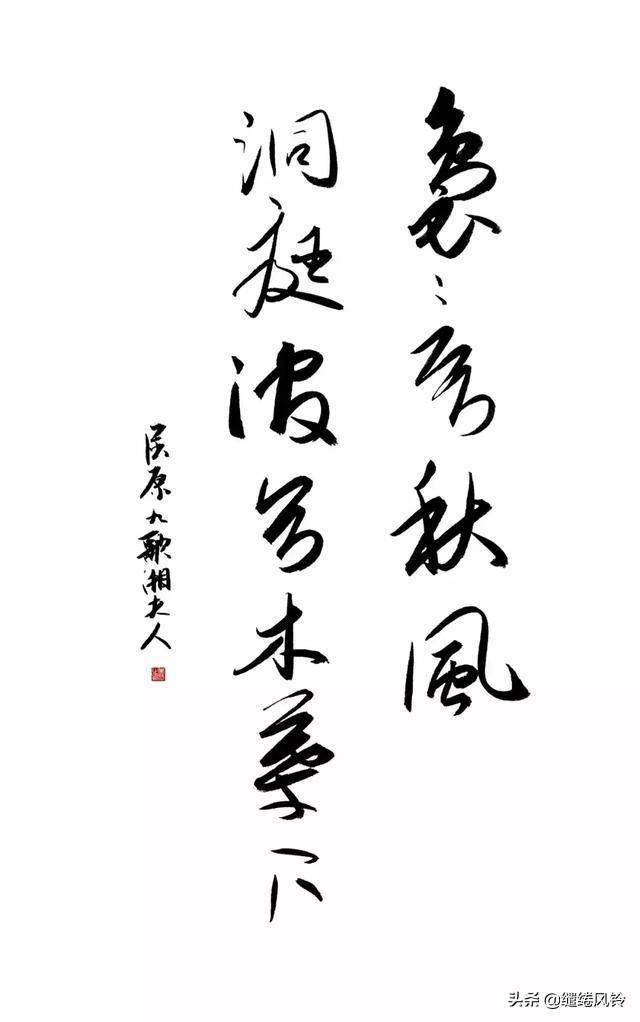 裊〻兮秋風
洞庭波兮木葉下
屈原九歌湘夫人
头条 @缱绻风铃